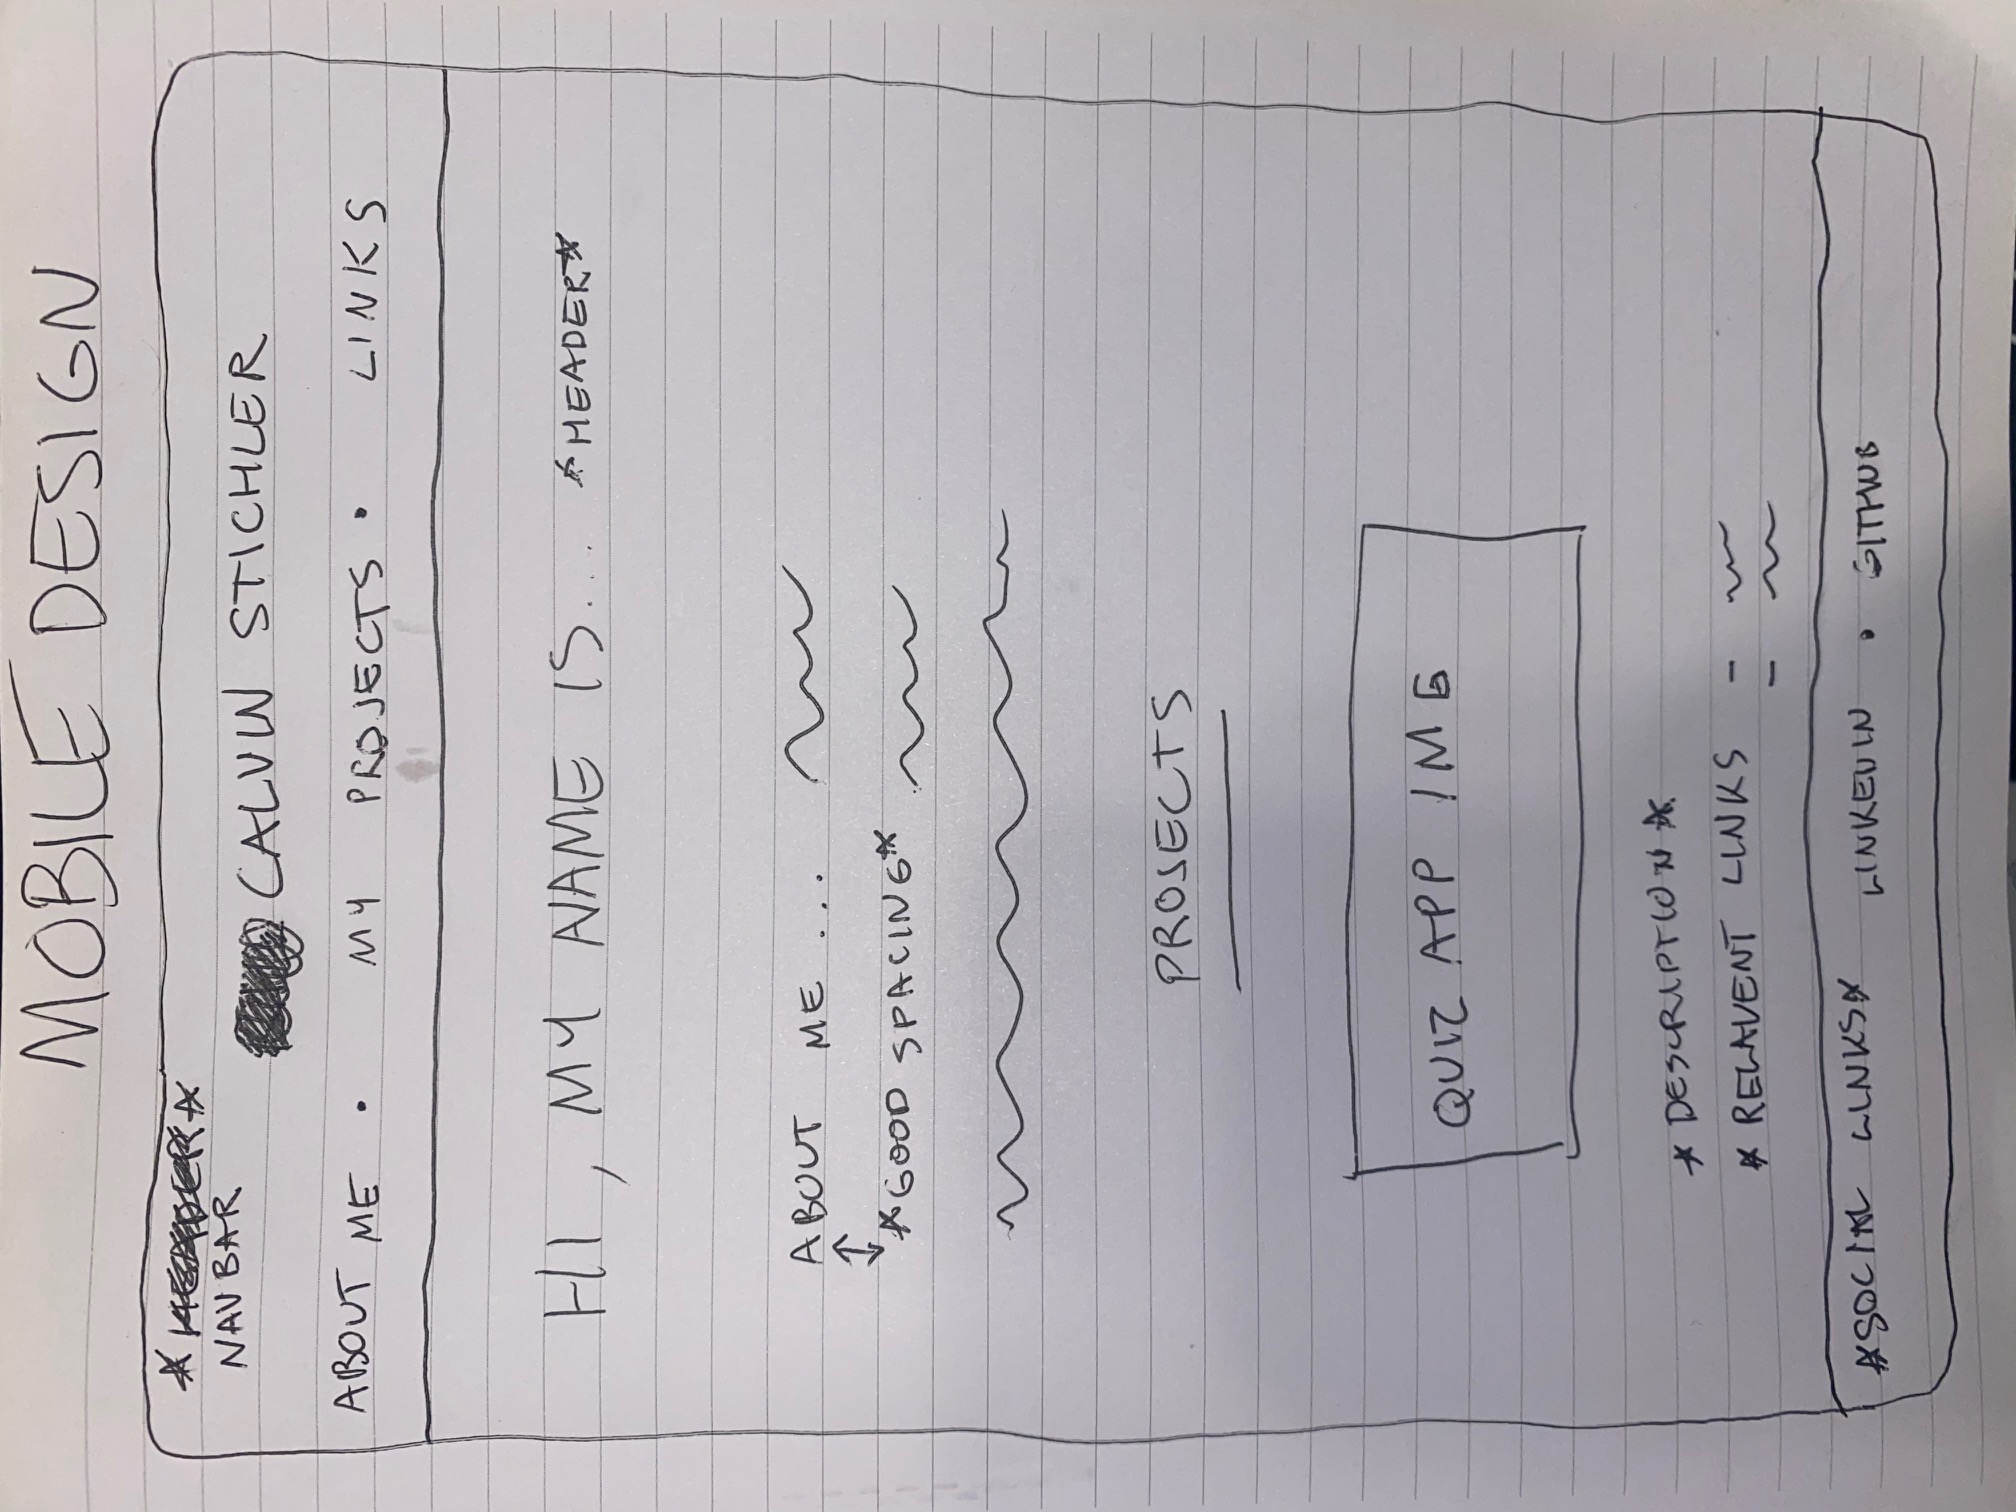 MOBILE DESIGN
* HEADER *
NAVBAR
CALVIN STICHLER
ABOUT ME • MY PROJECTS • LINKS
HI, MY NAME IS... *HEADER*
ABOUT ME ...
*GOOD SPACING*
PROJECTS
QUIZ APP IMG
* DESCRIPTION *
* RELAVENT LINKS - 
-
*SOCIAL LINKS* LINKEDIN • GITHUB